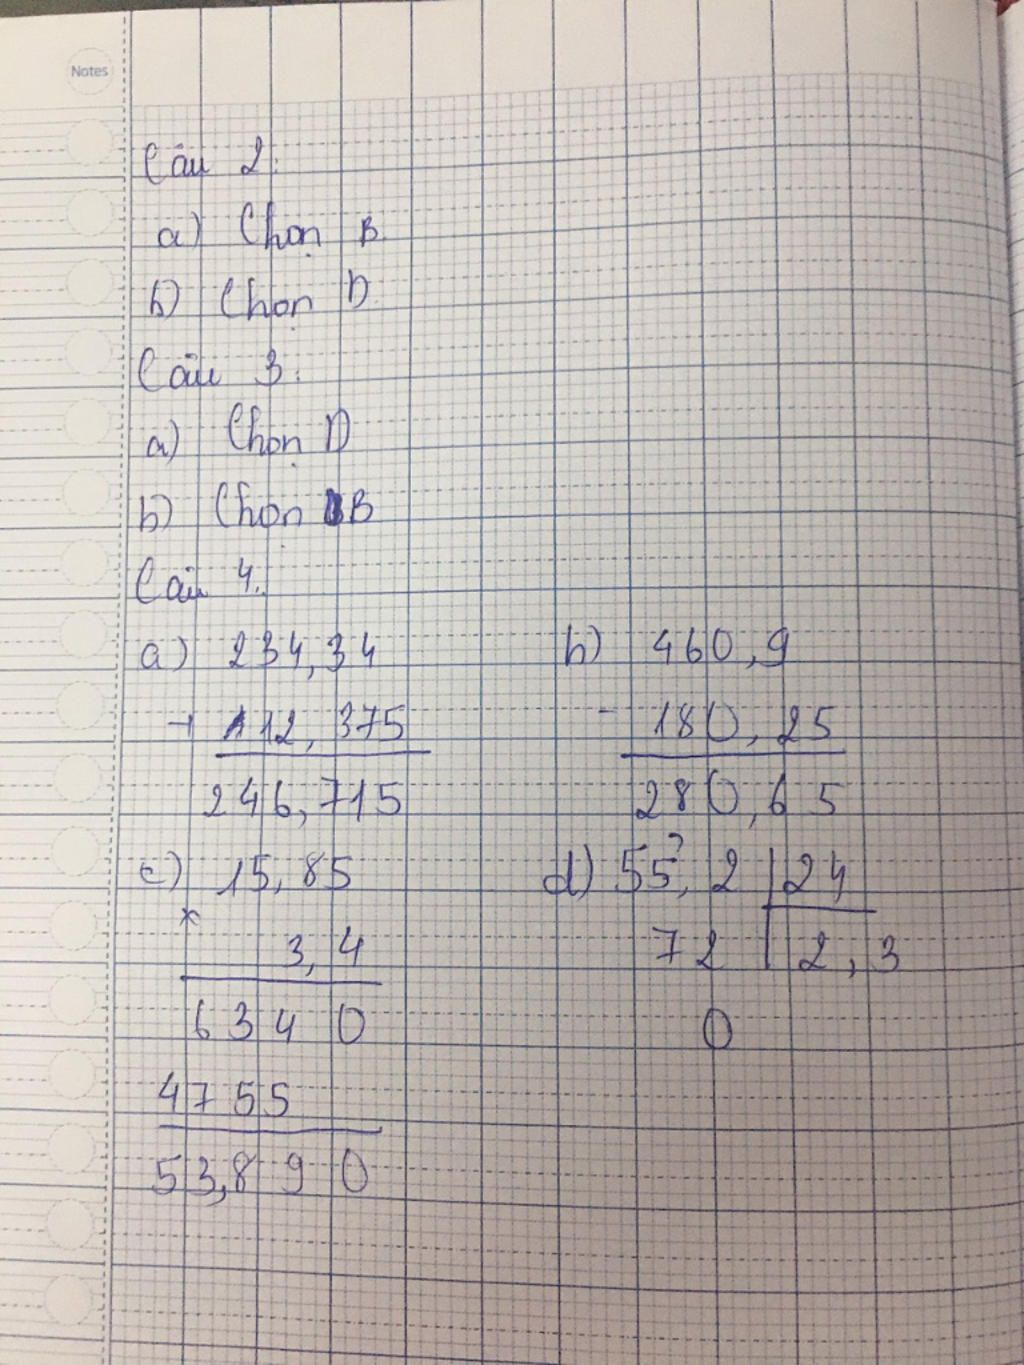 Notes
Câu 2:
a) Chọn B
b) Chọn D
Câu 3:
a) Chọn D
b) Chọn B
Câu 4:
a) 234,34 b) 460,9
+ 112,375 - 180,25
246,715 280,65
c) 15,85 d) 55,2 24
x 3,4 72 2,3
6340 0
4755
53,890